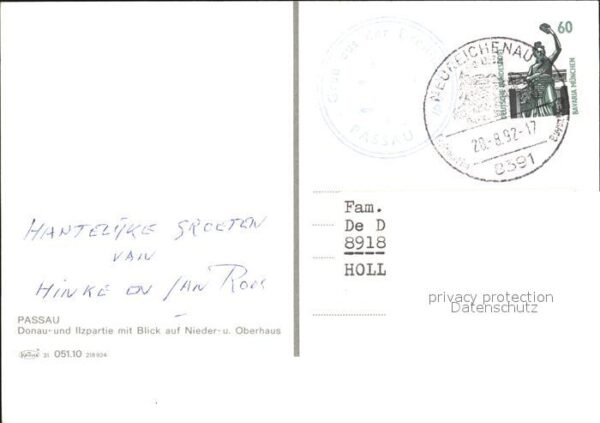 60
DEUTSCHE BUNDESPOST
BAVARIA MÜNCHEN
NEUREICHENAU
20.-8.92-17
8391
PASSAU
HANTELIJKE GROETEN
VAN
HINKE EN JAN
Fam.
De D
8918
HOLL
privacy protection
Datenschutz
PASSAU
Donau-und Ilzpartie mit Blick auf Nieder-u. Oberhaus
31 051.10 218924